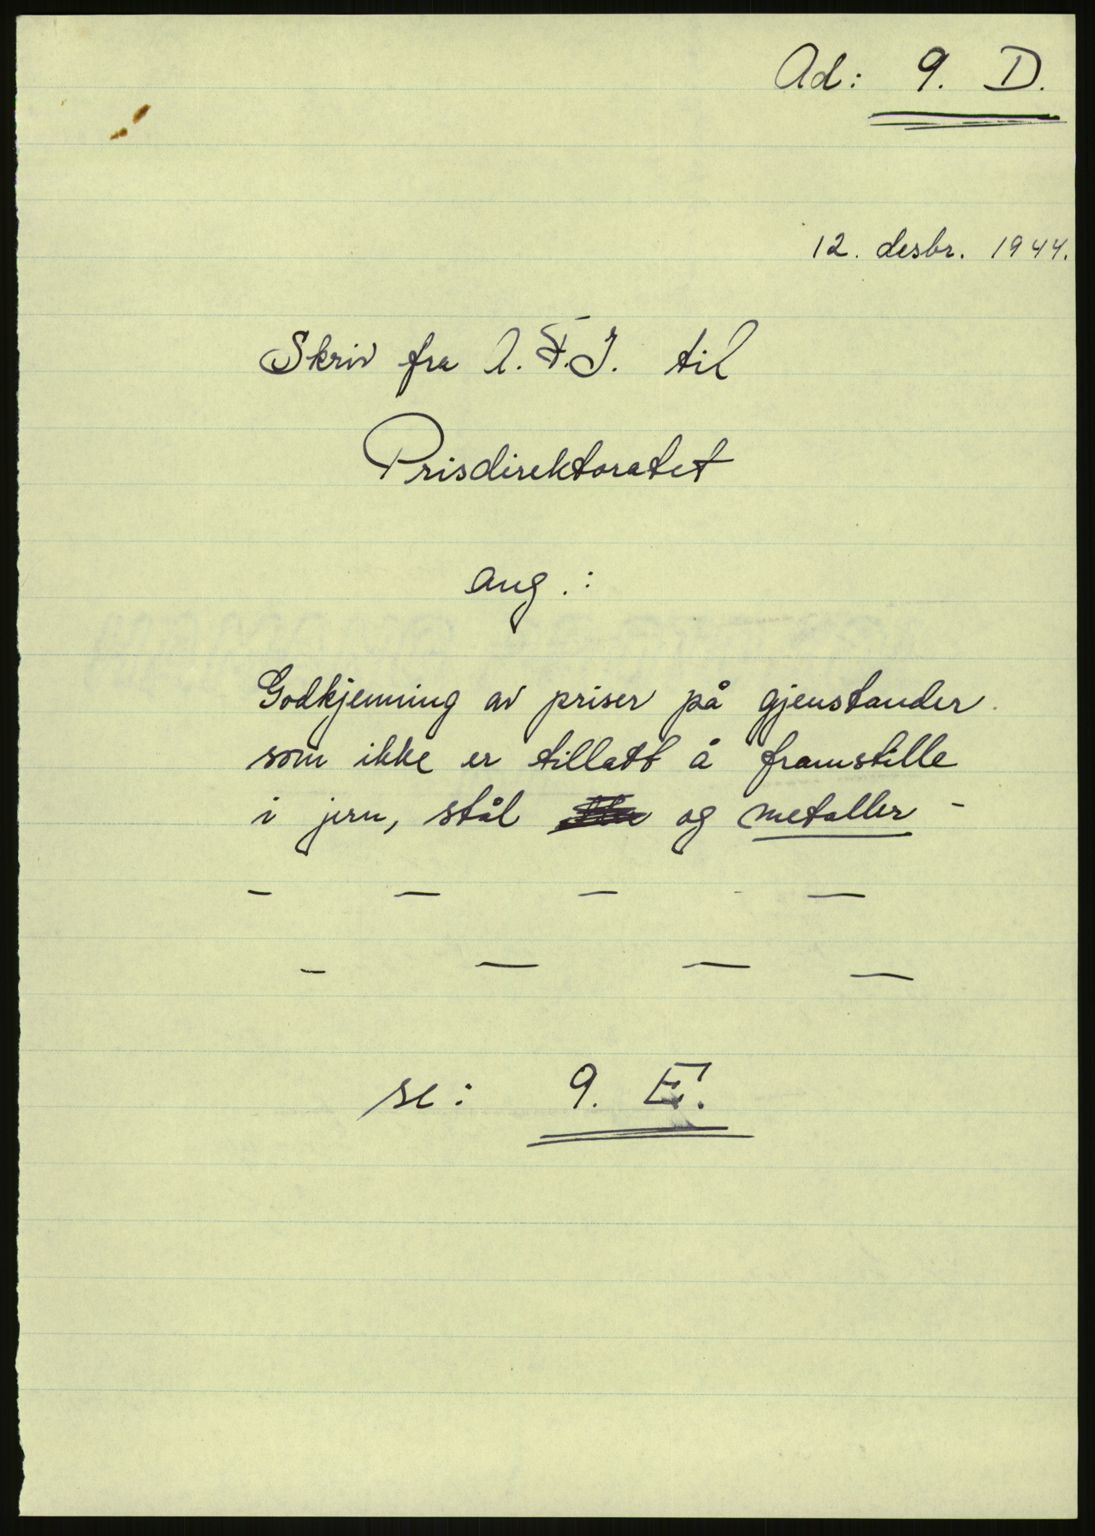 Ad: 9. D.
12. desbr. 1944.
Skriv fra l. F. I. til
Prisdirektoratet
ang.:
Godkjenning av priser på gjenstander
som ikke er tillatt å framstille
i jern, stål og metaller –
– – – –
– – – –
se: 9. E.